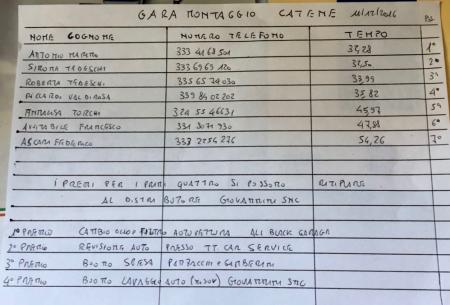 GARA MONTAGGIO CATENE 11/12/2016
NOME COGNOME NUMERO TELEFONO TEMPO POS
ANTONIO 333 4168501 31,28 1°
SIMONA TEDESCHI 333 6969 120 31,50 2°
ROBERTA TEDESCHI 335 6574030 33,99 3°
VALDIROSA 339 8402202 35,82 4°
TORCHI 328 5546631 45,97 5°
AMABILE FRANCESCO 331 3071930 47,58 6°
ASCARI FEDERICO 333 2254276 54,26 7°
I PREMI PER I PRIMI QUATTRO SI POSSONO RITIRARE
AL DISTRIBUTORE GIOVANNINI SNC
1° PREMIO CAMBIO OLIO E FILTRO AUTOVETTURA ALI BLACK GARAGE
2° PREMIO REVISIONE AUTO PRESSO TT CAR SERVICE
3° PREMIO BUONO SPESA PARTACCHI E GAMBERINI
4° PREMIO BUONO LAVAGGIO AUTO GIOVANNINI SNC